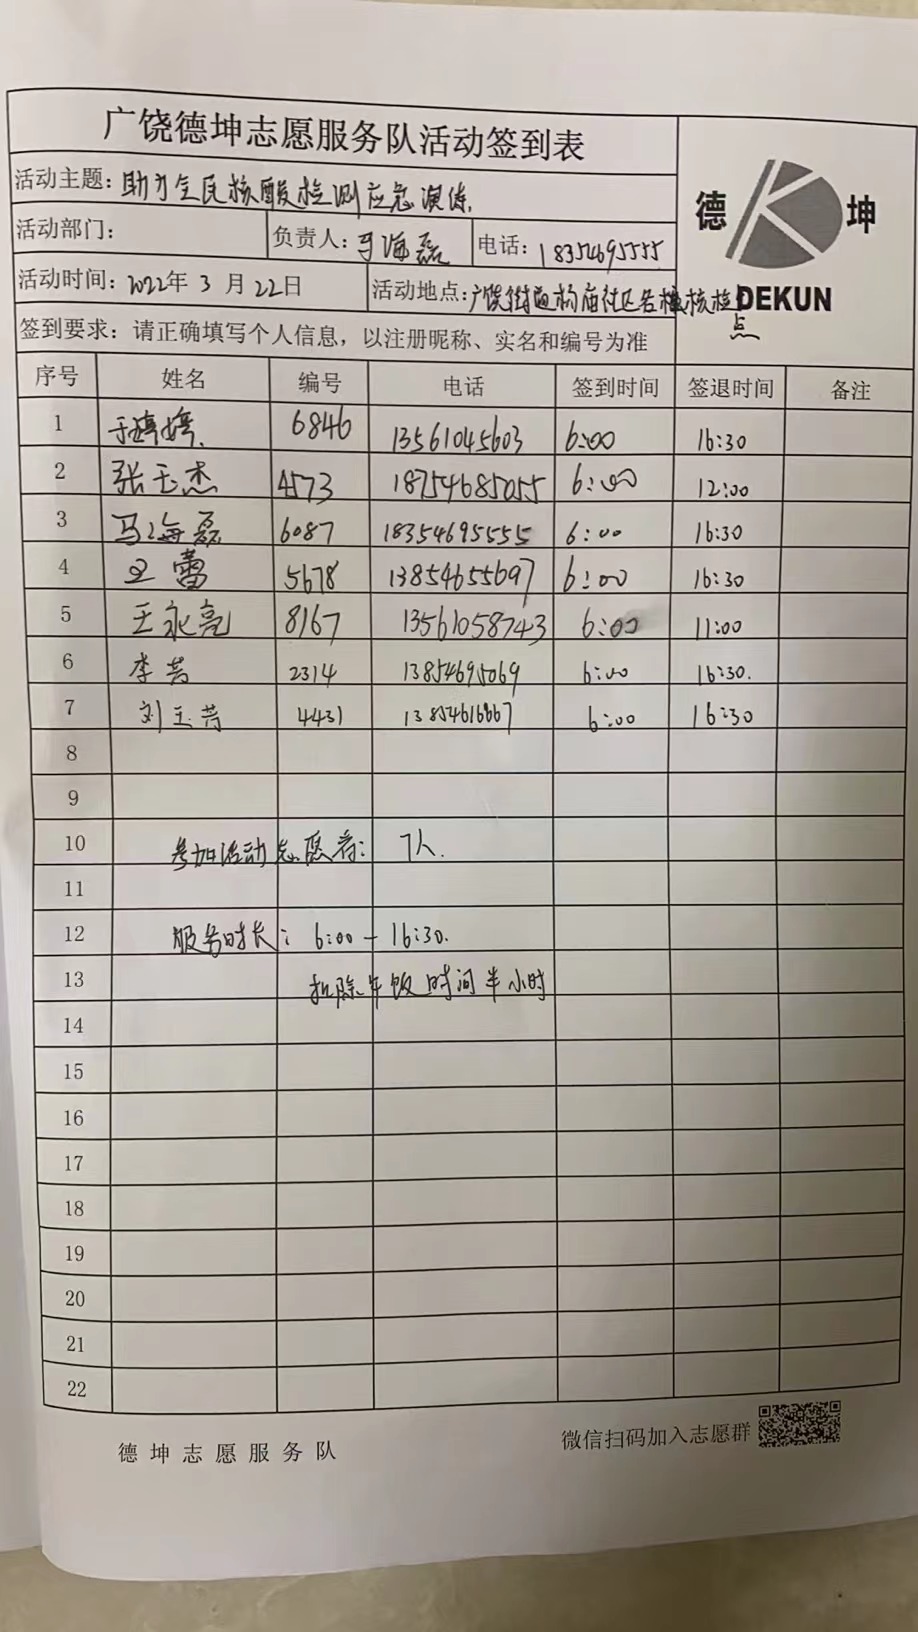 广饶德坤志愿服务队活动签到表
德 坤
DEKUN
活动主题：助力全民核酸检测应急演练.
活动部门： 负责人：马海磊 电话：18354695555
活动时间：2022年 3 月 22日 活动地点：广饶街道杨庙社区各核检点
签到要求：请正确填写个人信息，以注册昵称、实名和编号为准
序号 姓名 编号 电话 签到时间 签退时间 备注
1 于婷婷. 6846 13561045603 6:00 16:30
2 张玉杰 4573 18754685055 6:00 12:00
3 马海磊 6087 18354695555 6:00 16:30
4 王蕾 5678 13854655697 6:00 16:30
5 王永亮 8167 13561058743 6:00 11:00
6 李芸 2314 13854695069 6:00 16:30.
7 刘玉芸 4431 6:00 16:30
8
9
10 参加活动志愿者： 7人.
11
12 服务时长： 6:00－16:30.
13 扣除午饭时间半小时
14
15
16
17
18
19
20
21
22
德坤志愿服务队
微信扫码加入志愿群